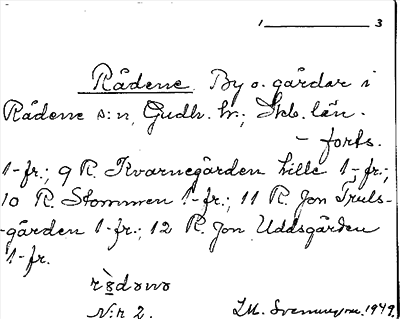 1 3
Rådene. By o. gårdar i
Rådene s:n, Gudh. hr.; Skb. län.
– forts.
1-fr.; 9 R. Kvarnegården Lille 1-fr.;
10 R. Stommen 1-fr.; 11 R. Jon Truls-
-gården 1-fr.; 12 R. Jon Uddsgården
1-fr.
N:r 2. 1949.